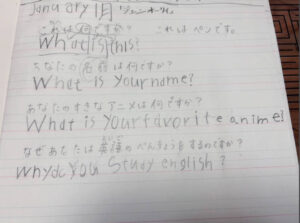 January 1月
これは何ですか? これはペンです。
What is this?
あなたの名前は何ですか?
What is Your name?
あなたのすきなアニメは何ですか?
What is your favorite anime?
なぜあなたは英語のべんきょうをするのですか?
Why do you study english?